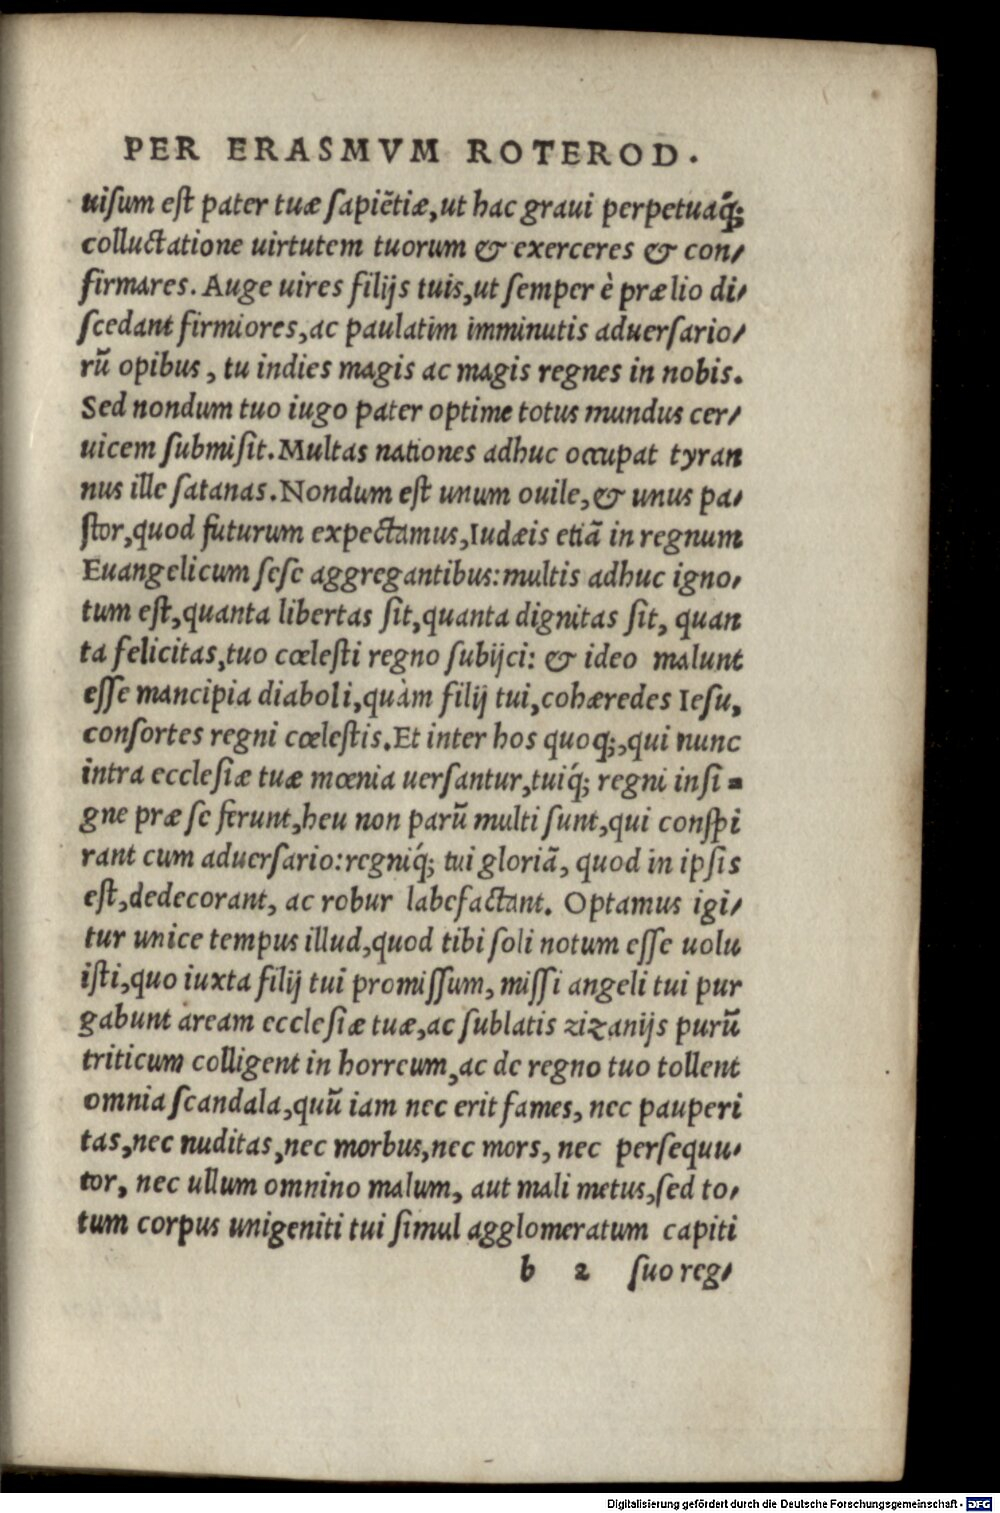 PER ERASMVM ROTEROD.
uisum est pater tuæ sapiẽtiæ, ut hac graui perpetuaq́;
colluctatione uirtutem tuorum & exerceres & con-
firmares. Auge uires filijs tuis, ut semper è prælio di-
scedant firmiores, ac paulatim imminutis aduersario-
rũ opibus, tu indies magis ac magis regnes in nobis.
Sed nondum tuo iugo pater optime totus mundus cer-
uicem submisit. Multas nationes adhuc occupat tyran
nus ille satanas. Nondum est unum ouile, & unus pa-
stor, quod futurum expectamus, Iudæis etiã in regnum
Euangelicum sese aggregantibus: multis adhuc igno-
tum est, quanta libertas sit, quanta dignitas sit, quan
ta felicitas, tuo cœlesti regno subijci: & ideo malunt
esse mancipia diaboli, quàm filij tui, cohæredes Iesu,
consortes regni cœlestis. Et inter hos quoq;, qui nunc
intra ecclesiæ tuæ mœnia uersantur, tuiq́; regni insi-
gne præ se ferunt, heu non parũ multi sunt, qui conspi
rant cum aduersario: regniq́; tui gloriã, quod in ipsis
est, dedecorant, ac robur labefactant. Optamus igi-
tur unice tempus illud, quod tibi soli notum esse uolu
isti, quo iuxta filij tui promissum, missi angeli tui pur
gabunt aream ecclesiæ tuæ, ac sublatis zizanijs purũ
triticum colligent in horreum, ac de regno tuo tollent
omnia scandala, quũ iam nec erit fames, nec pauperi
tas, nec nuditas, nec morbus, nec mors, nec persequu-
tor, nec ullum omnino malum, aut mali metus, sed to-
tum corpus unigeniti tui simul agglomeratum capiti
b 2 suo reg-
Digitalisierung gefördert durch die Deutsche Forschungsgemeinschaft - DFG